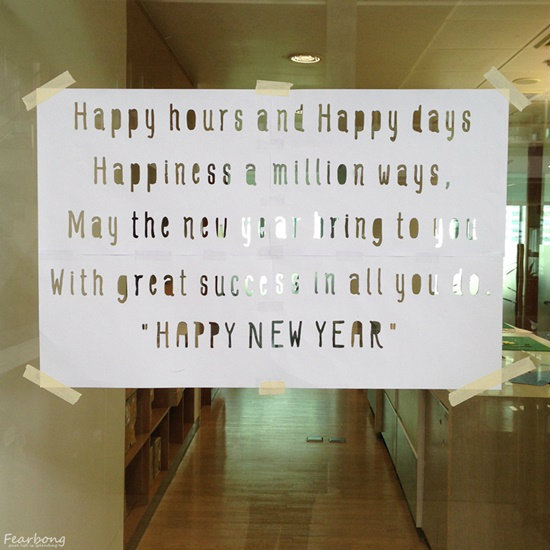 Happy hours and Happy days
Happiness a million ways,
May the new year bring to you
With great success in all you do.
"HAPPY NEW YEAR"
Fearbong